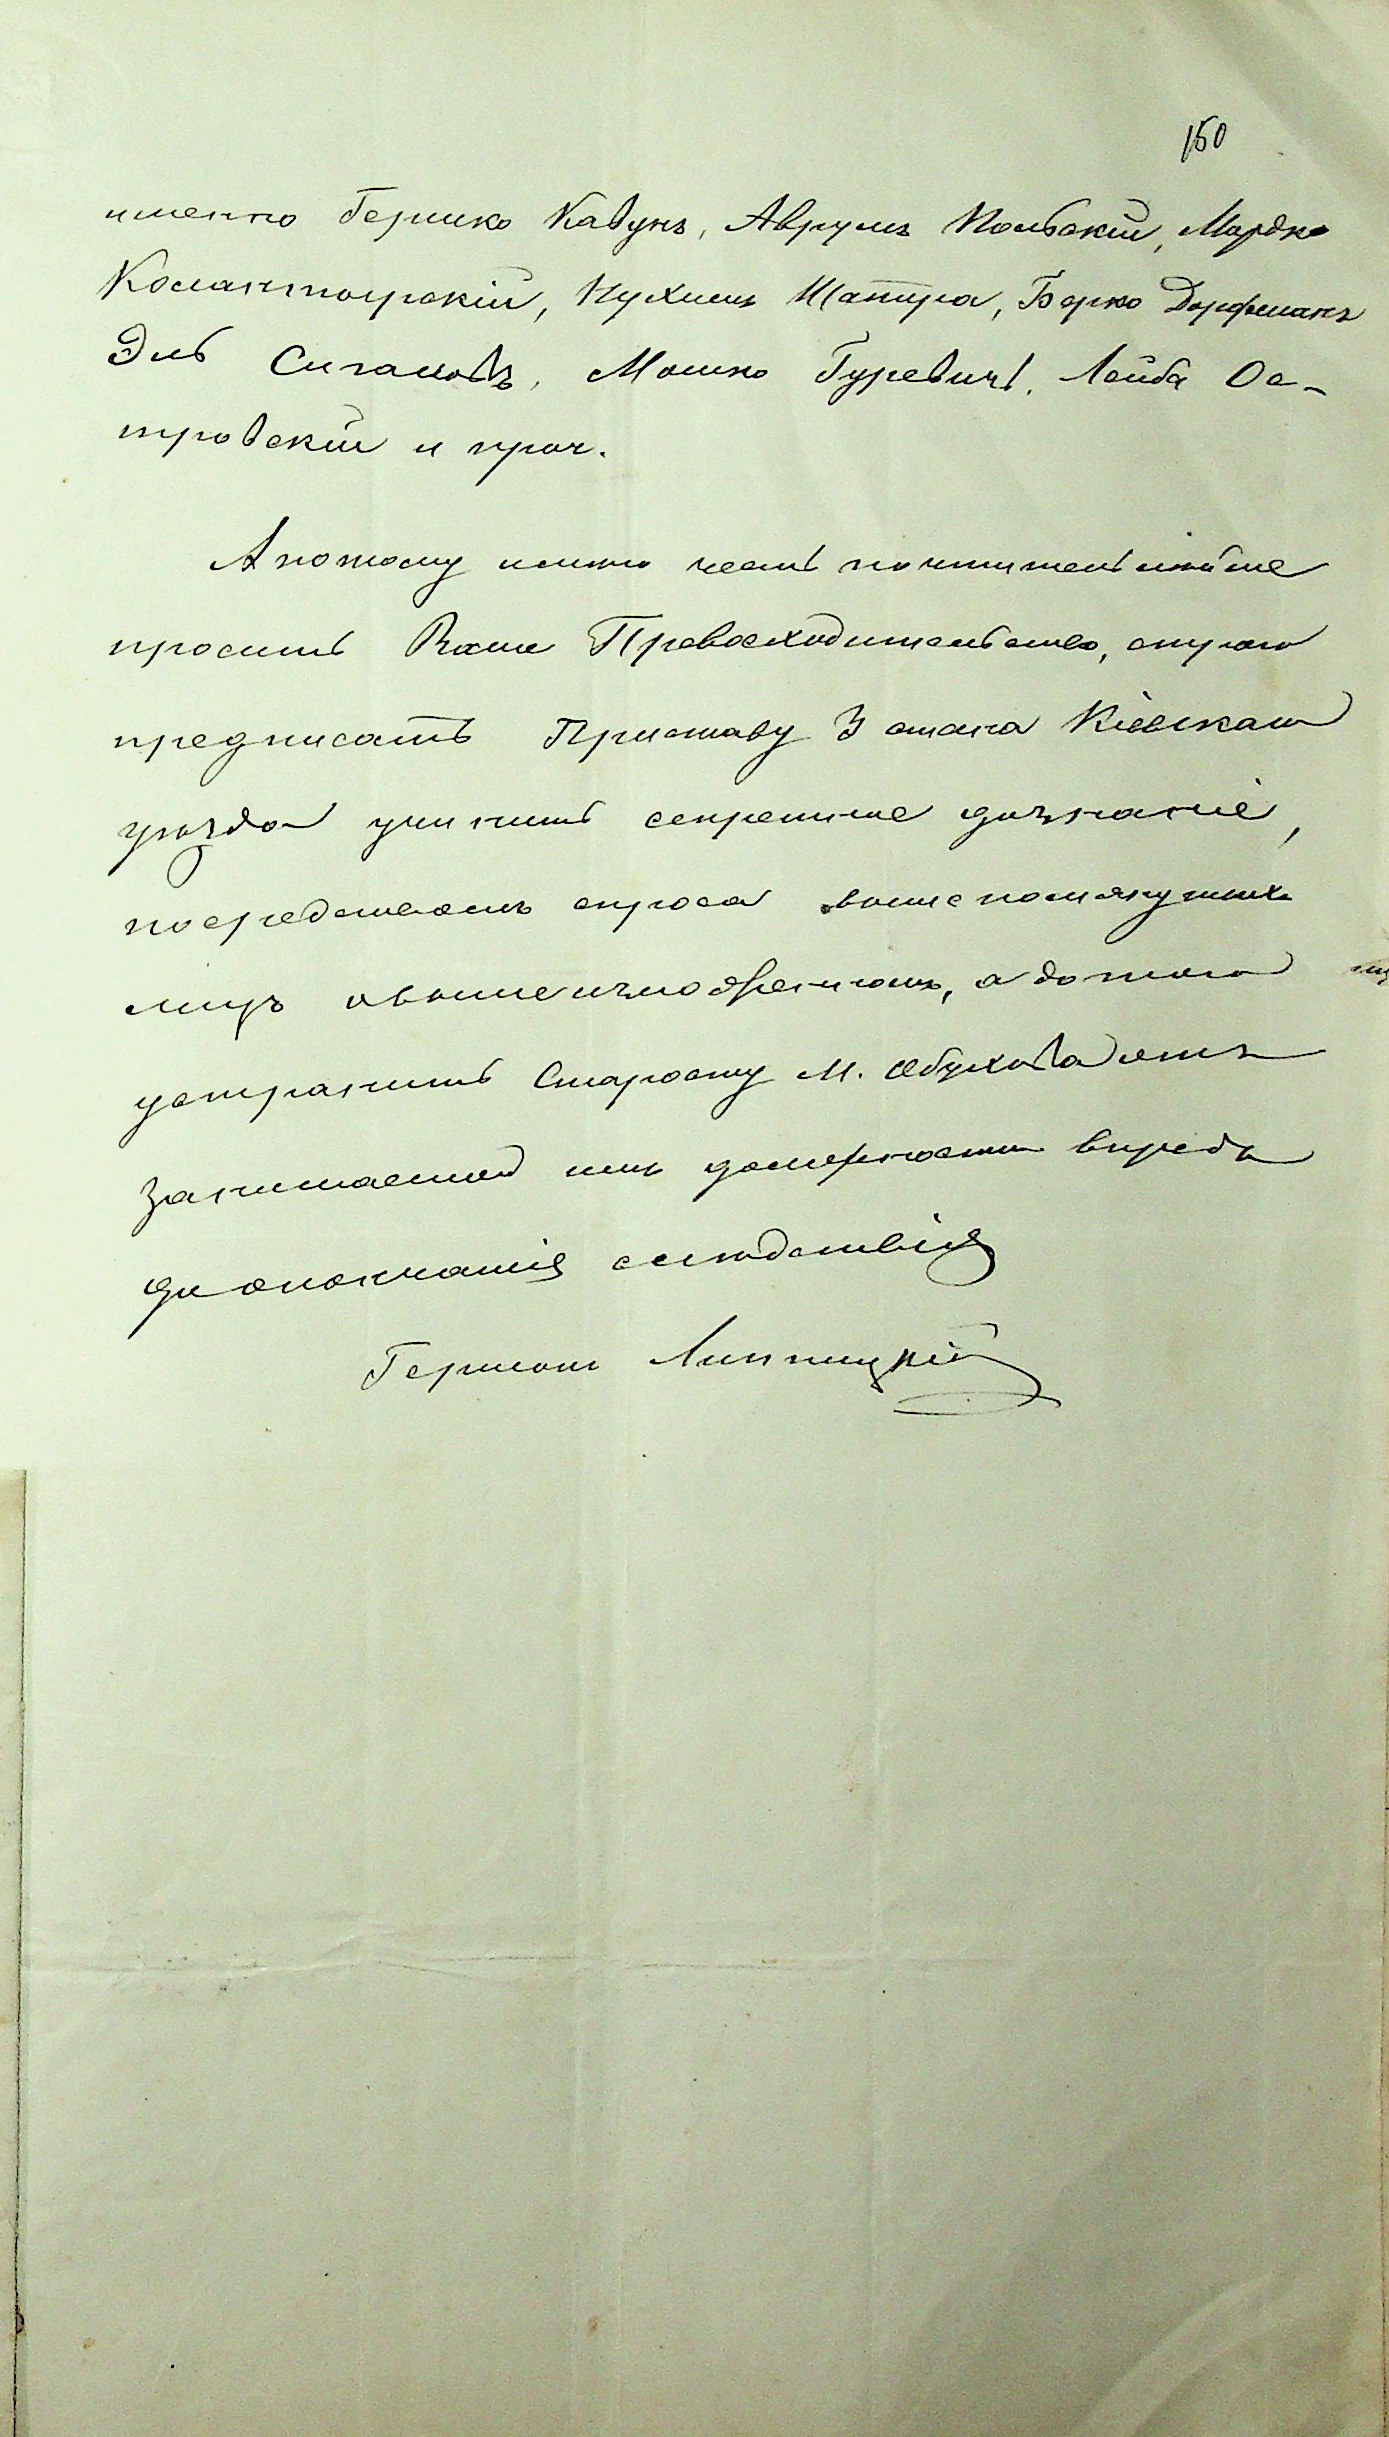 150
именно Гершко Кавунъ, Аврумъ Польскій, Мордко
Колантырскій, Нухимъ Шапира, Берко Дорфманъ
Эль Сигаловъ, Мошко Гуревичъ, Лейба Ос-
тровскій и проч.
А потому имею честь почтительнѣйше
просить Ваше Превосходительство, строго
предписать Приставу 3 стана Кіевскаго
уѣзда учинить секретное дознаніе,
посредствомъ спроса вышепомянутыхъ
лицъ о вышеизложенномъ, а до того
устранить Старосту м. Обухова отъ
занимаемой имъ должности впредь
до окончанія слѣдствія
Гершонъ Липницкій